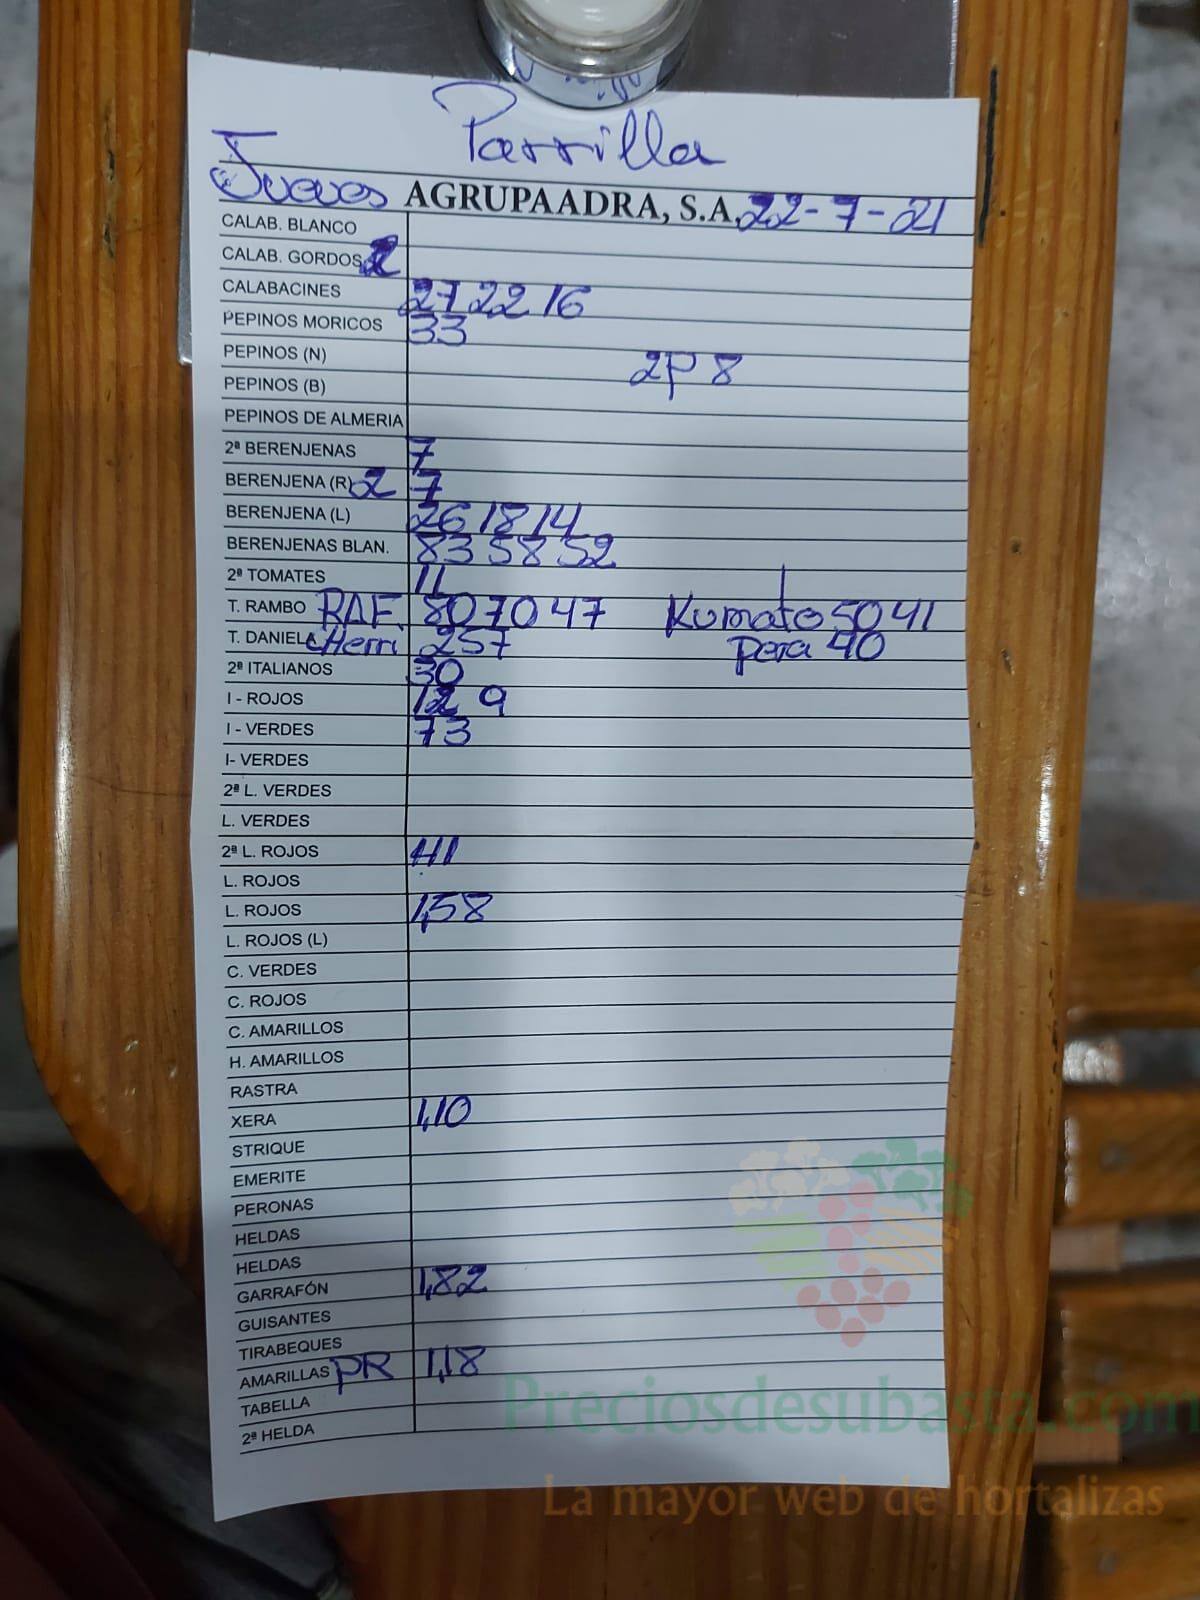 Parrilla
Jueves AGRUPAADRA, S.A. 22-7-21
CALAB. BLANCO
CALAB. GORDOS 2
CALABACINES 27 22 16
PEPINOS MORICOS 33
PEPINOS (N) 2P 8
PEPINOS (B)
PEPINOS DE ALMERIA
2ª BERENJENAS 7
BERENJENA (R) 2 7
BERENJENA (L) 26 18 14
BERENJENAS BLAN. 83 58 52
2ª TOMATES 11
T. RAMBO RAF. 80 70 47 Kumato 50 41
T. DANIELA cHerri 257 pera 40
2ª ITALIANOS 30
I - ROJOS 129
I - VERDES 73
I- VERDES
2ª L. VERDES
L. VERDES
2ª L. ROJOS 41
L. ROJOS
L. ROJOS 1,58
L. ROJOS (L)
C. VERDES
C. ROJOS
C. AMARILLOS
H. AMARILLOS
RASTRA
XERA 1,10
STRIQUE
EMERITE
PERONAS
HELDAS
HELDAS
GARRAFÓN 1,82
GUISANTES
TIRABEQUES
AMARILLAS PR 1,18
TABELLA
2ª HELDA
Preciosdesubasta.com
La mayor web de hortalizas